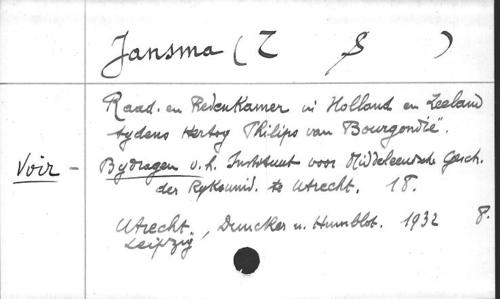 Jansma (T S )
Raad. en Rekenkamer in Holland en Zeeland
tydens Hertog Philips van Bourgondië".
Voir - Bydragen v. h. Instituut voor Middeleeuwsche Gesch.
der Ryksunid. te Utrecht. 18.
Utrecht. Leipzig, Duncker u. Humblot. 1932 8.